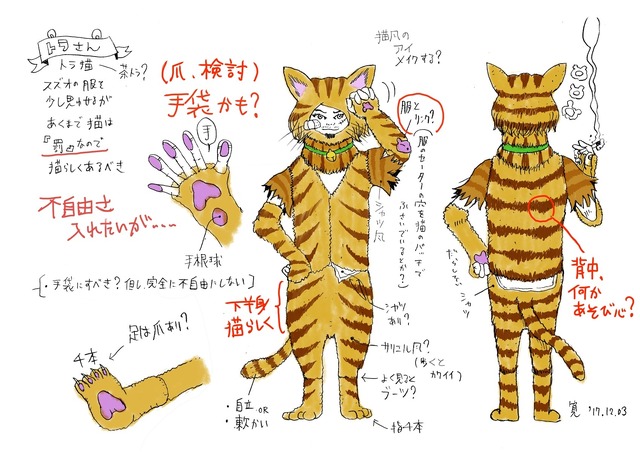 トラさん
トラ猫
茶トラ?
スズオの服を
少し思わせるが
あくまで猫は
『罰』なので
猫らしくあるべき
(爪、検討)
手袋かも?
手
不自由さ
入れたいが・・・・
手根球
[・手袋にすべき?但し、完全に不自由にしない]
足は爪あり?
4本
猫風の
アイ
メイクする?
服と
リンク?
服のセーターの穴を猫のパッチで
ふさいでいるとか?
シャツ風
下半身
猫らしく
シャツ
あり?
サリエル風?
(歩くと
カワイイ)
よく見ると
ブーツ?
指4本
・自立 or
・軟かい
だらしない
シャツ
背中、
何か
あそび心?
寛 '17.12.03